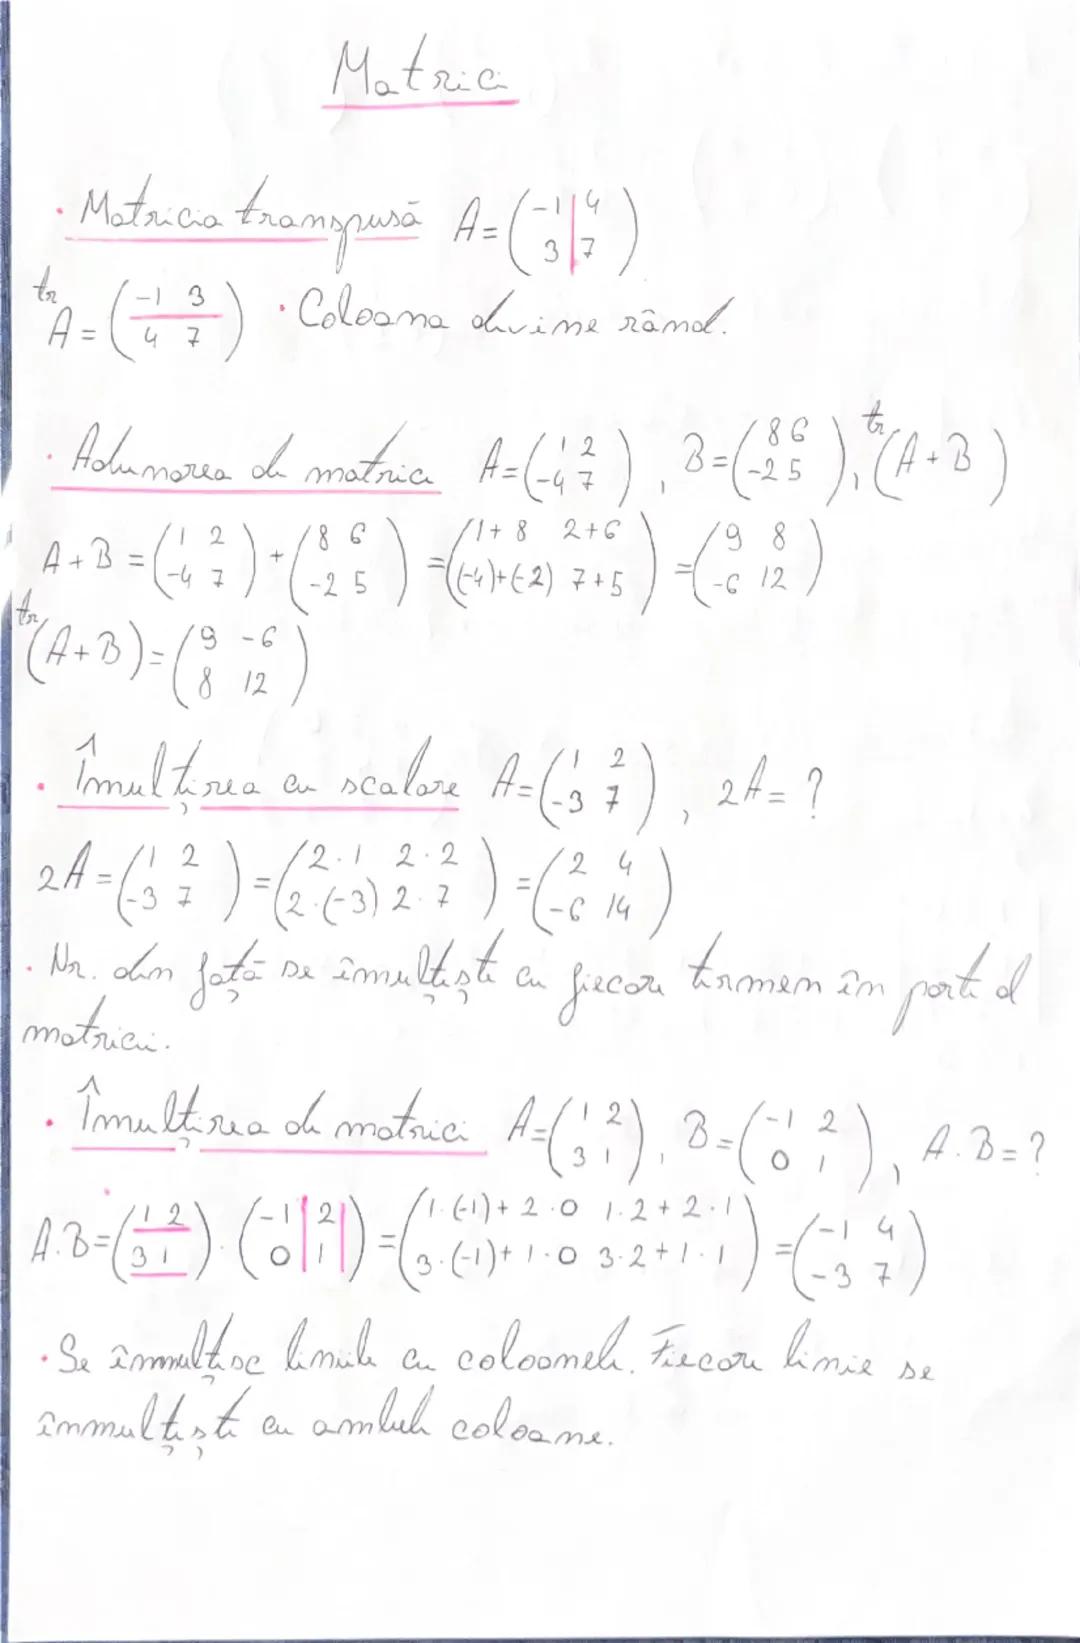 Matrici
· Matricia transpusă A=(-1 4 / 3 7)
ᵗʳA=(-1 3 / 4 7) · Coloana devine rând.
· Adunarea de matrice A=(1 2 / -4 7), B=(8 6 / -2 5), ᵗʳ(A+B)
A+B=(1 2 / -4 7)+(8 6 / -2 5)=(1+8 2+6 / (-4)+(-2) 7+5)=(9 8 / -6 12)
ᵗʳ(A+B)=(9 -6 / 8 12)
· Îmulțirea cu scalare A=(1 2 / -3 7), 2A=?
2A=(1 2 / -3 7)=(2·1 2·2 / 2·(-3) 2·7)=(2 4 / -6 14)
· Nr. din față se îmulțește cu fiecare termen în parte al
matricei.
· Îmulțirea de matrici A=(1 2 / 3 1), B=(-1 2 / 0 1), A·B=?
A·B=(1 2 / 3 1)·(-1 2 / 0 1)=(1·(-1)+2·0 1·2+2·1 / 3·(-1)+1·0 3·2+1·1)=(-1 4 / -3 7)
· Se înmulțesc liniile cu coloanele. Fiecare linie se
înmulțește cu ambele coloane.